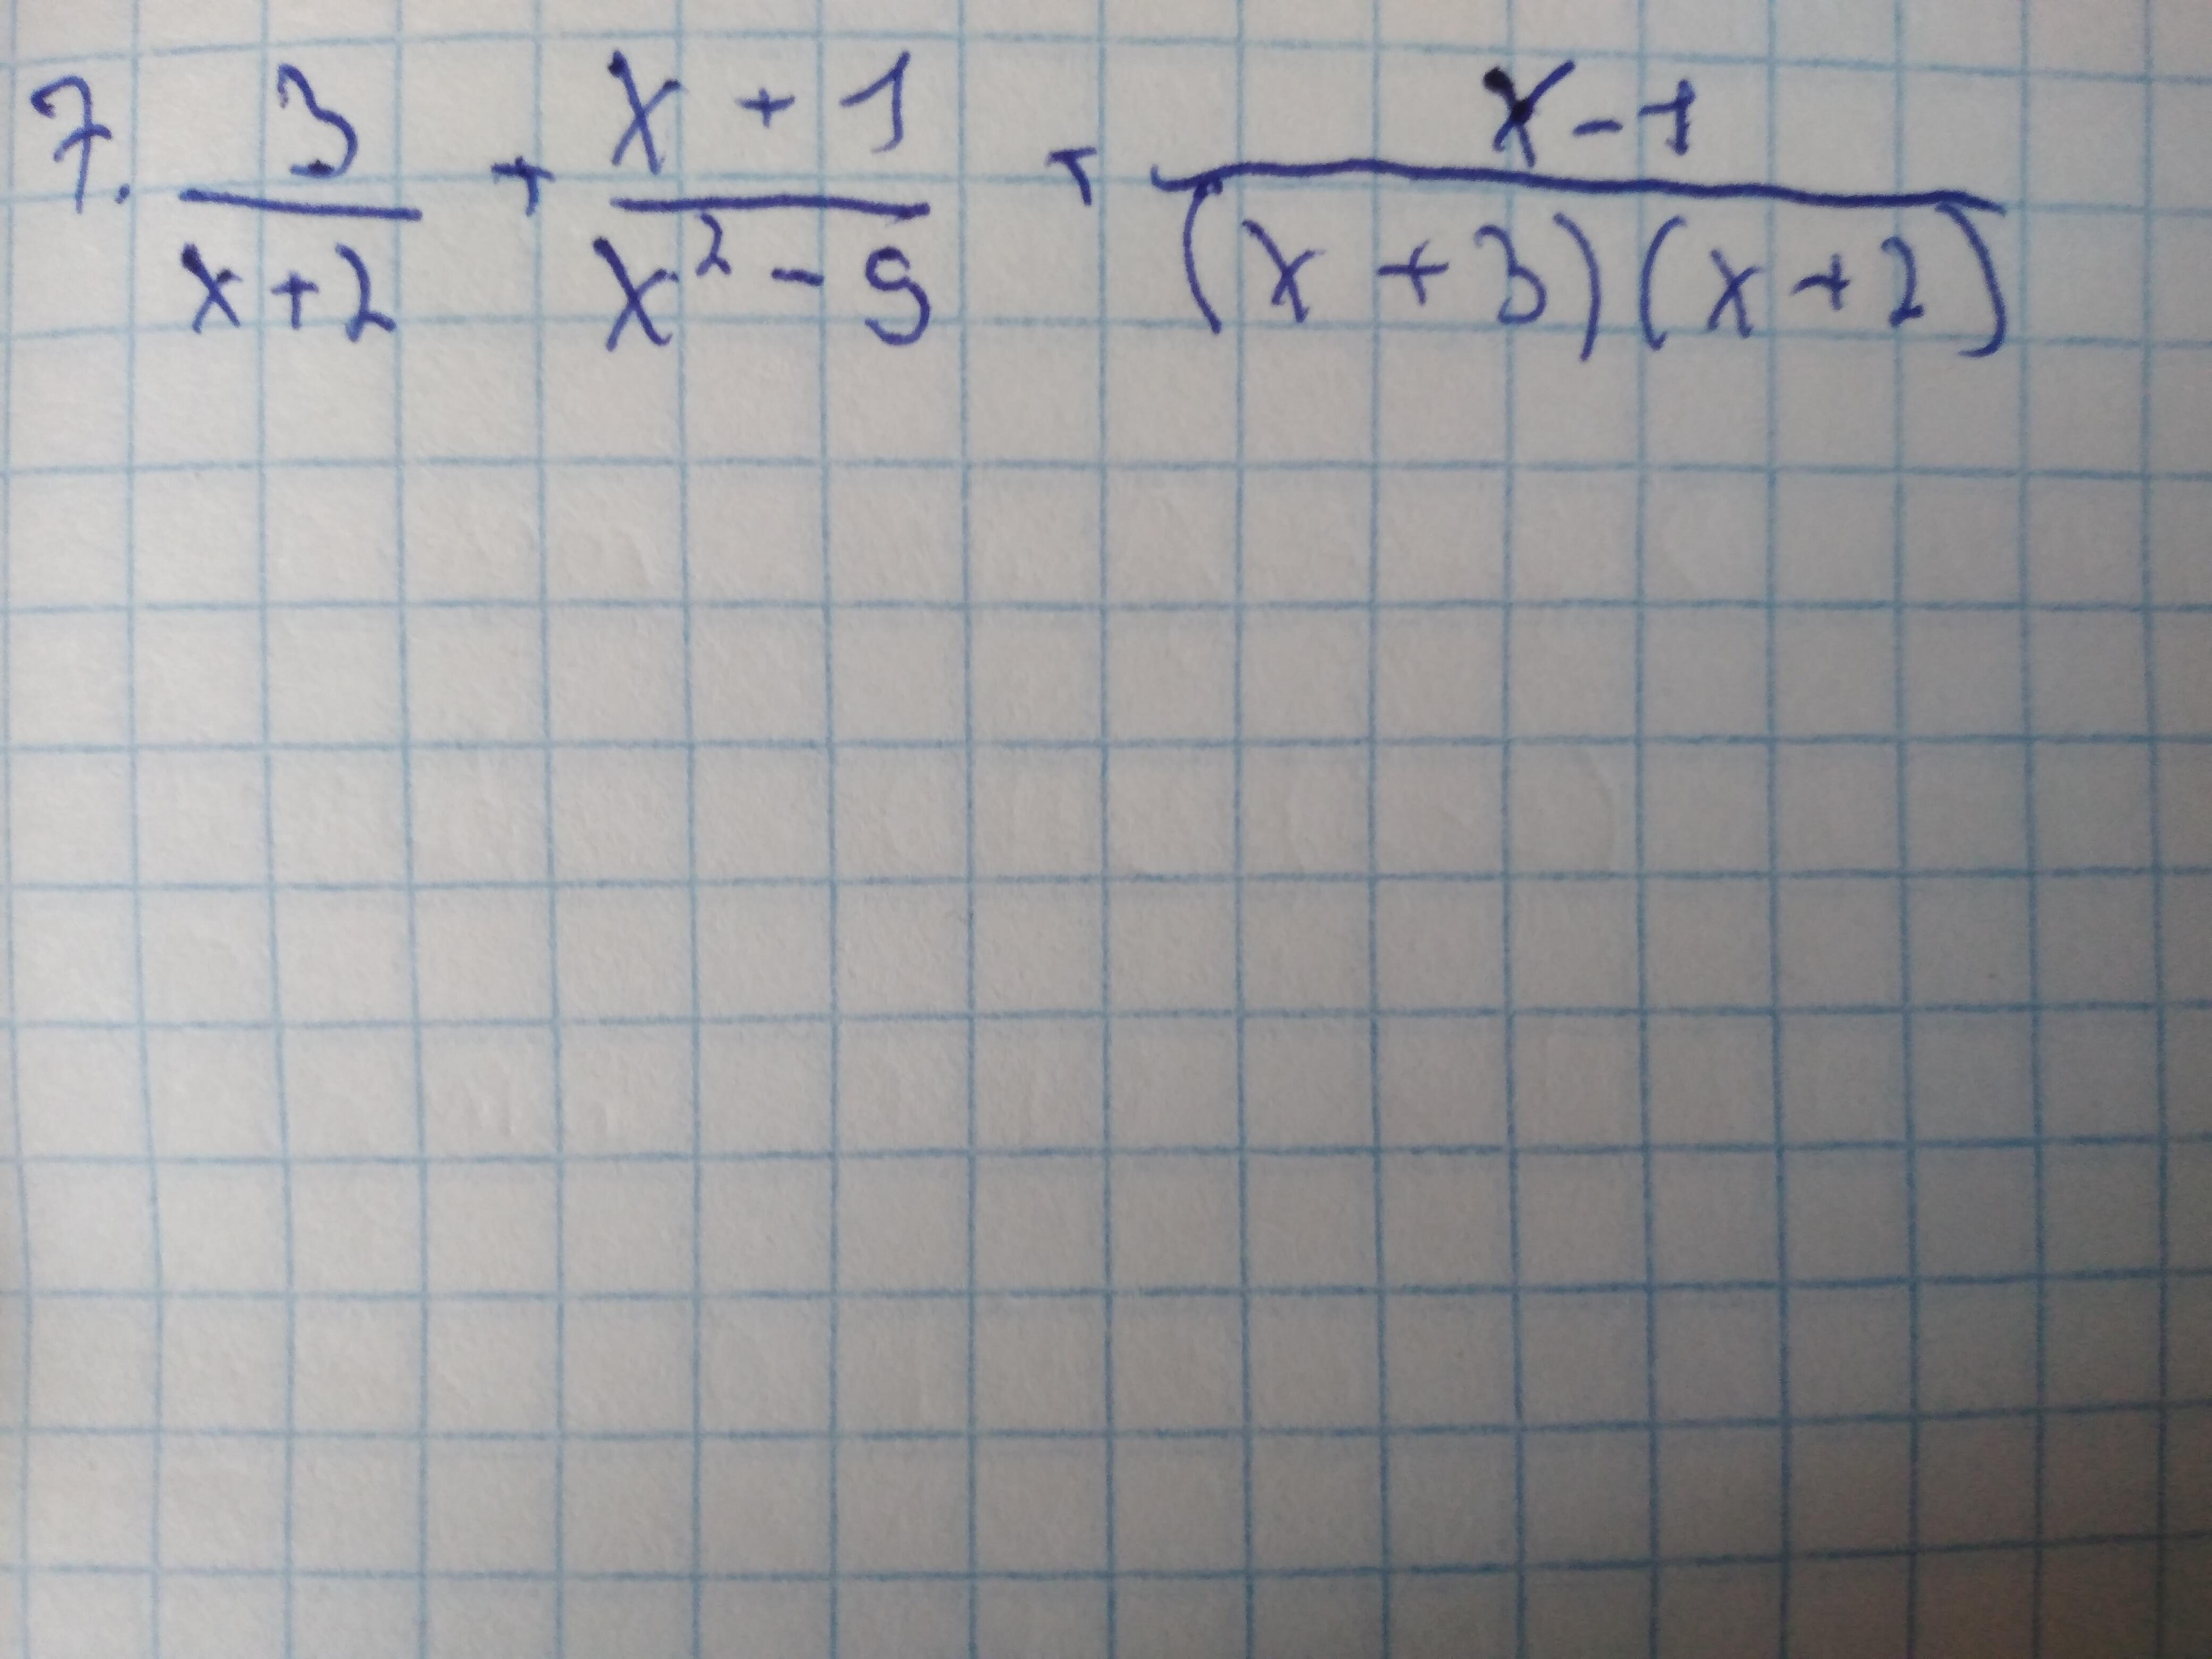 7. 3/(x+2) + (x+1)/(x²-9) + (x-1)/((x+3)(x+2))